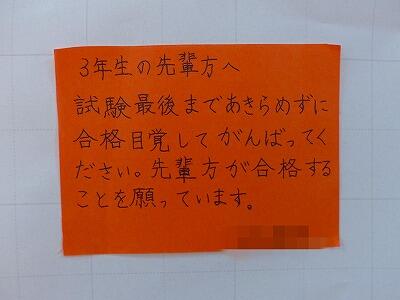 3年生の先輩方へ
試験最後まであきらめずに
合格目覚してがんばってく
ださい。先輩方が合格する
ことを願っています。